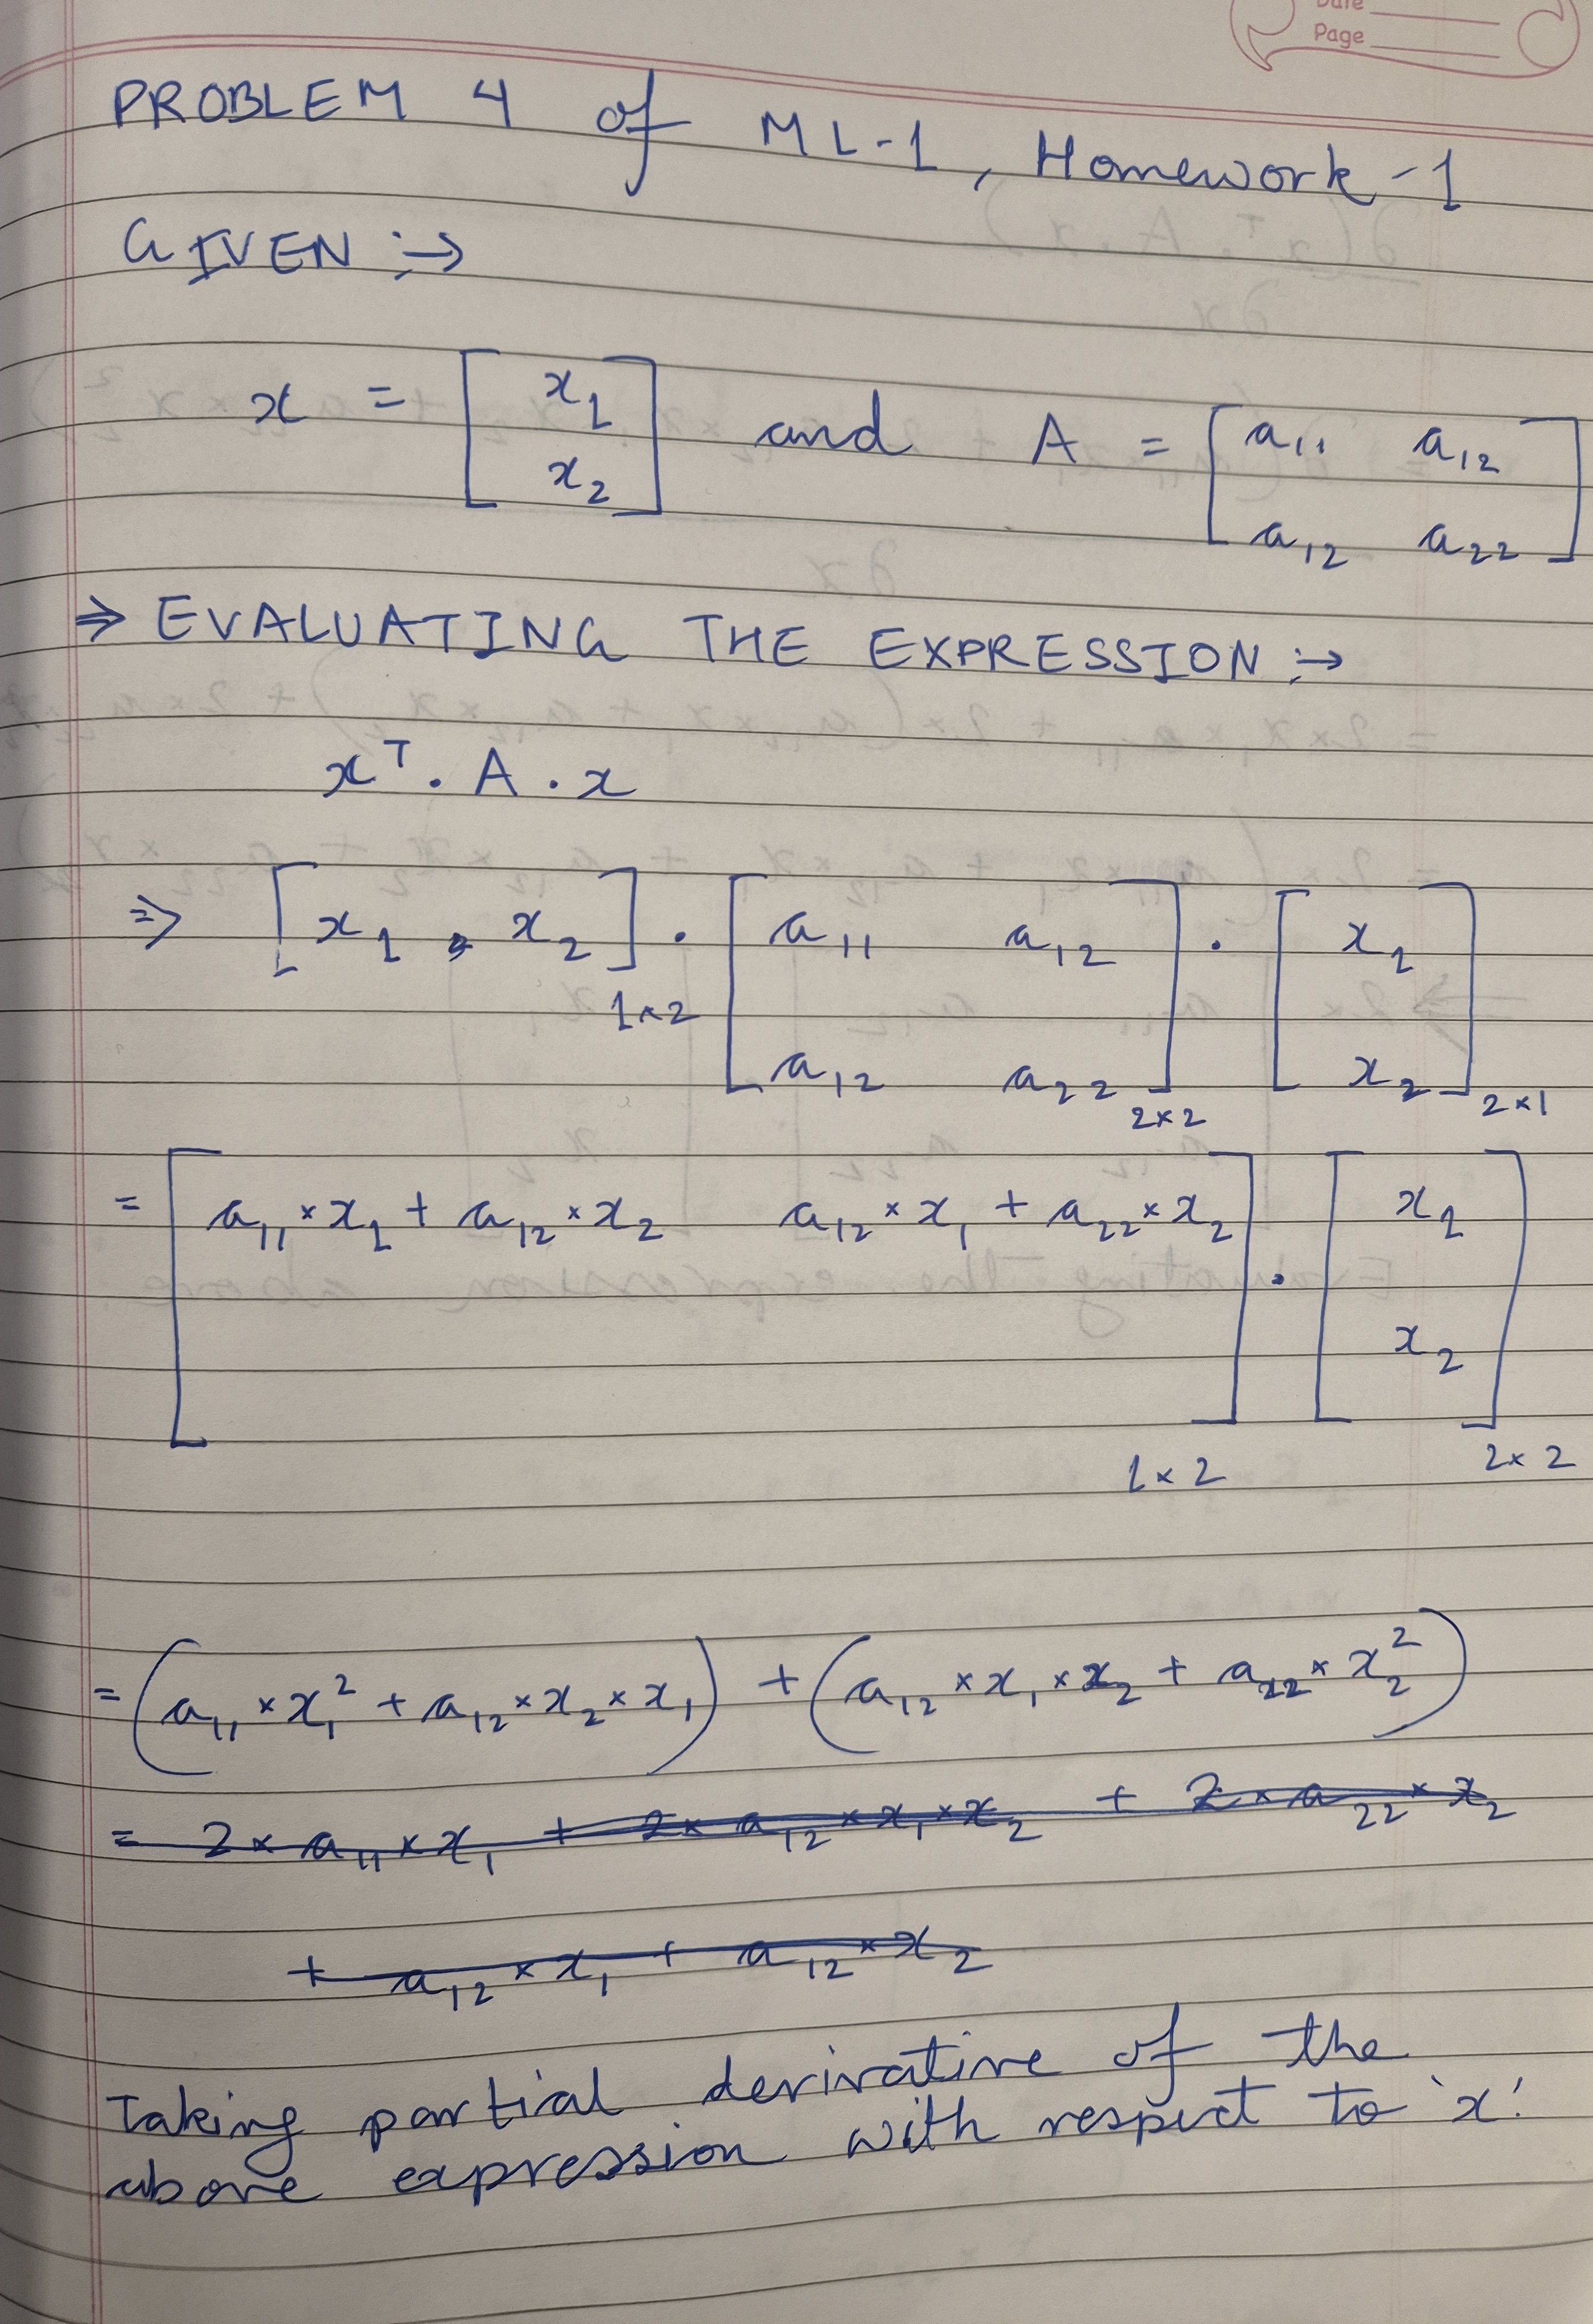 Date
Page
PROBLEM 4 of ML-1, Homework-1
GIVEN :→
x = [x₁ x₂] and A = [a₁₁ a₁₂
a₁₂ a₂₂]
⇒ EVALUATING THE EXPRESSION :→
xᵀ . A . x
⇒ [x₁ , x₂]₁ₓ₂ . [a₁₁ a₁₂ . [x₁
a₁₂ a₂₂]₂ₓ₂ x₂]₂ₓ₁
= [a₁₁ × x₁ + a₁₂ × x₂ a₁₂ × x₁ + a₂₂ × x₂] . [x₁
x₂]
1 × 2 2 × 2
= (a₁₁ × x₁² + a₁₂ × x₂ × x₁) + (a₁₂ × x₁ × x₂ + a₂₂ × x₂²)
= 2 × a₁₁ × x₁ + 2 × a₁₂ × x₁ × x₂ + 2 × a₂₂ × x₂
+ a₁₂ × x₁ + a₁₂ × x₂
Taking partial derivative of the
above expression with respect to 'x'